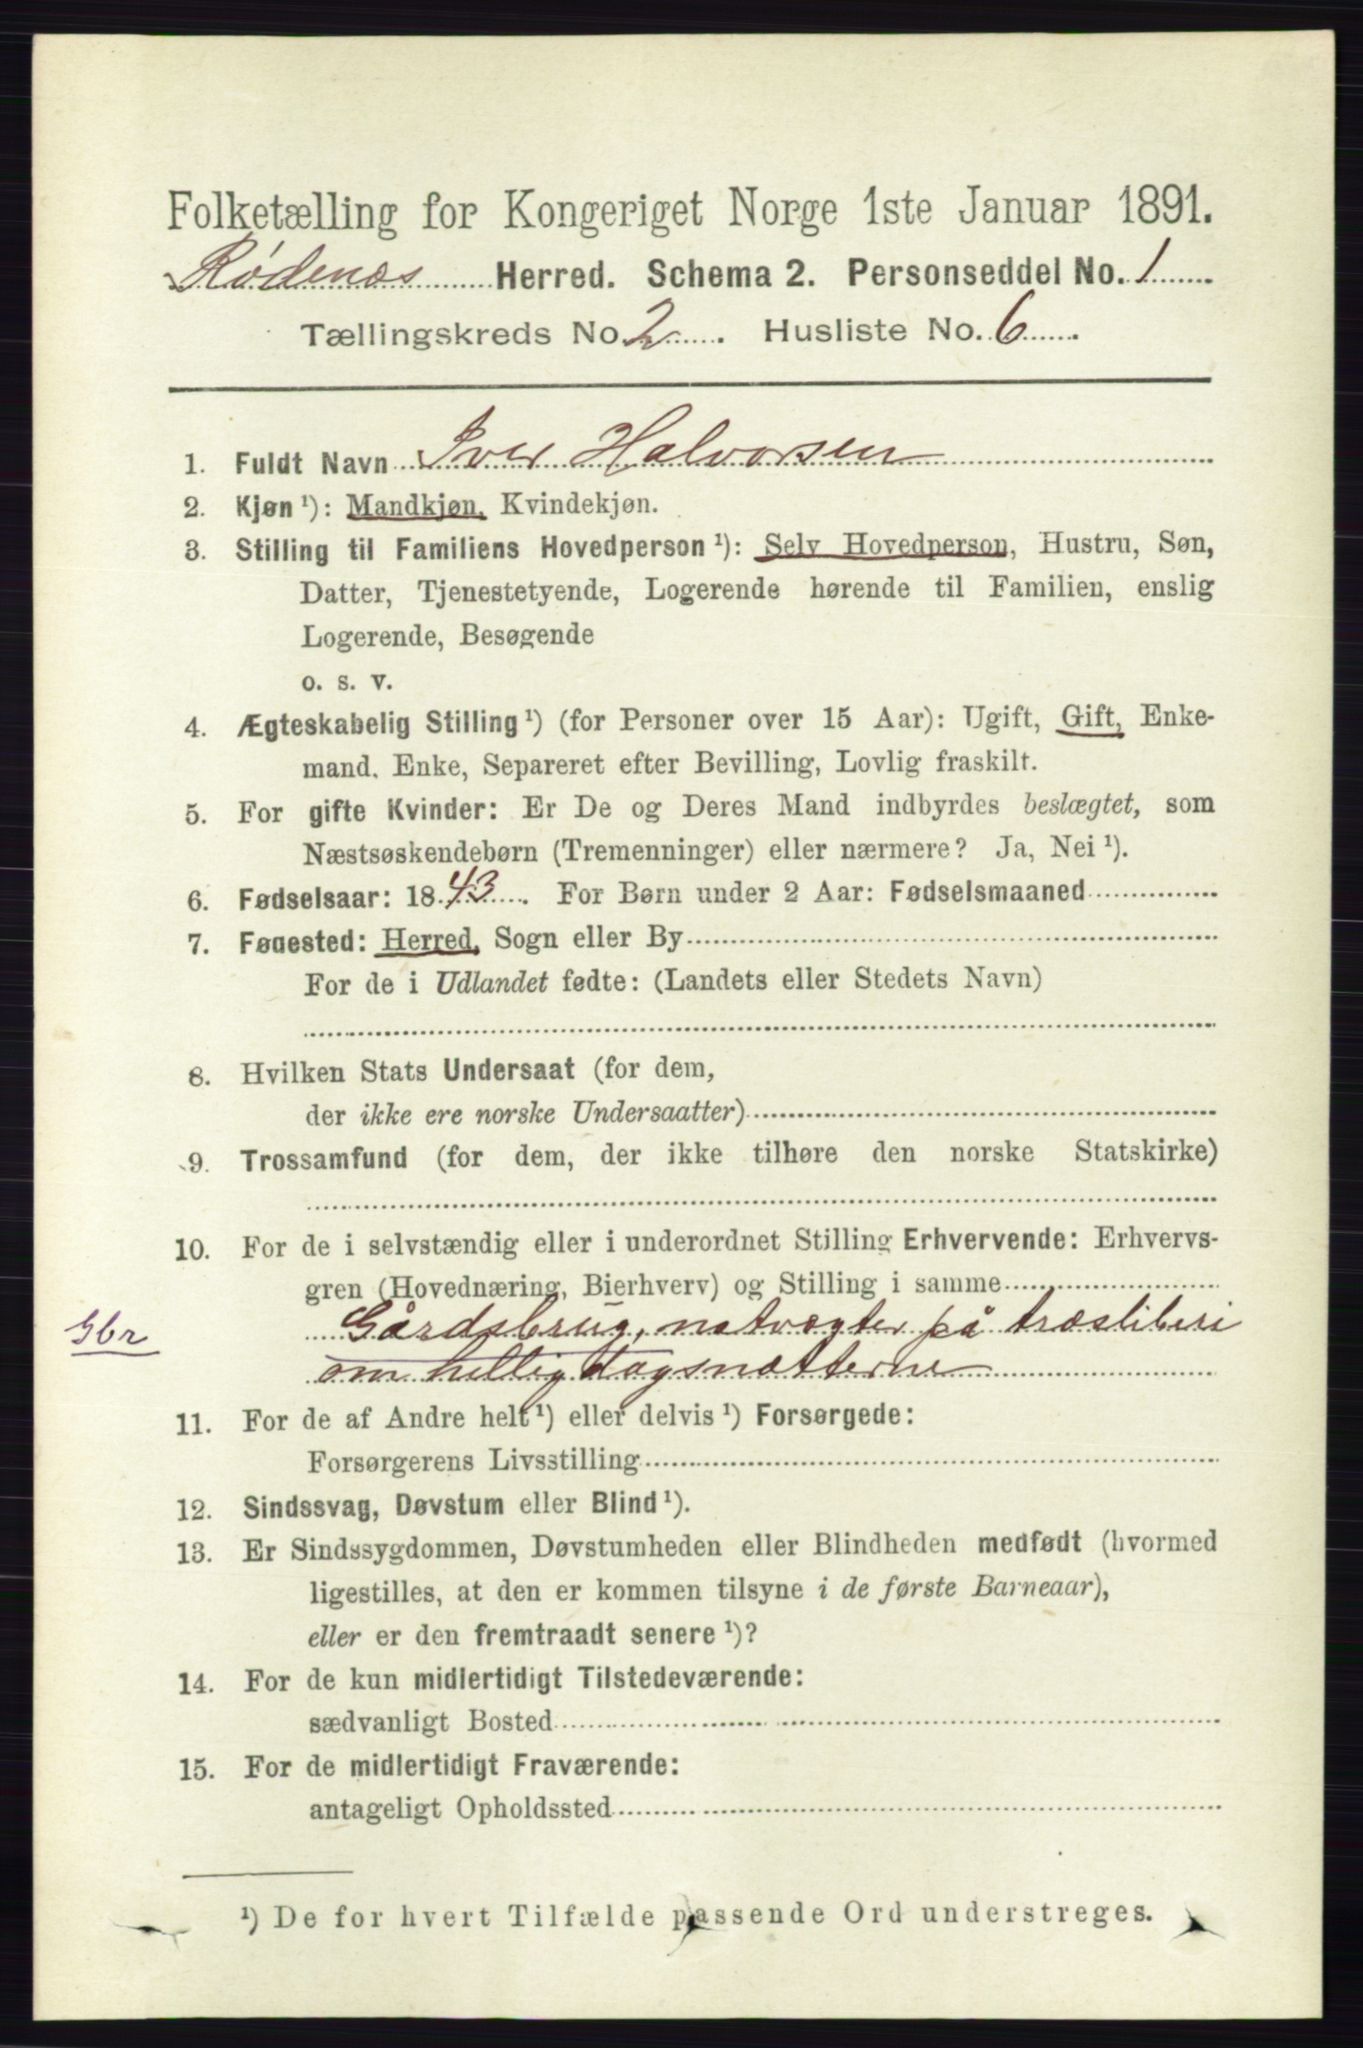 Folketælling for Kongeriget Norge 1ste Januar 1891.
Rødenæs Herred. Schema 2. Personseddel No. 1
Tællingskreds No. 2. Husliste No. 6.
1. Fuldt Navn Iver Halvorsen
2. Kjøn ¹): Mandkjøn, Kvindekjøn.
3. Stilling til Familiens Hovedperson ¹): Selv Hovedperson, Hustru, Søn,
Datter, Tjenestetyende, Logerende hørende til Familien, enslig
Logerende, Besøgende
o. s. v.
4. Ægteskabelig Stilling ¹) (for Personer over 15 Aar): Ugift, Gift, Enke-
mand, Enke, Separeret efter Bevilling, Lovlig fraskilt.
5. For gifte Kvinder: Er De og Deres Mand indbyrdes beslægtet, som
Næstsøskendebørn (Tremenninger) eller nærmere? Ja, Nei ¹).
6. Fødselsaar: 1843. For Børn under 2 Aar: Fødselsmaaned
7. Fødested: Herred, Sogn eller By
For de i Udlandet fødte: (Landets eller Stedets Navn)
8. Hvilken Stats Undersaat (for dem,
der ikke ere norske Undersaatter)
9. Trossamfund (for dem, der ikke tilhøre den norske Statskirke)
10. For de i selvstændig eller i underordnet Stilling Erhvervende: Erhvervs-
gren (Hovednæring, Bierhverv) og Stilling i samme
Gbr Gårdsbrug, natvægter på træsliberi
om helligdagsnætterne
11. For de af Andre helt ¹) eller delvis ¹) Forsørgede:
Forsørgerens Livsstilling
12. Sindssvag, Døvstum eller Blind ¹).
13. Er Sindssygdommen, Døvstumheden eller Blindheden medfødt (hvormed
ligestilles, at den er kommen tilsyne i de første Barneaar),
eller er den fremtraadt senere ¹)?
14. For de kun midlertidigt Tilstedeværende:
sædvanligt Bosted
15. For de midlertidigt Fraværende:
antageligt Opholdssted
¹) De for hvert Tilfælde passende Ord understreges.